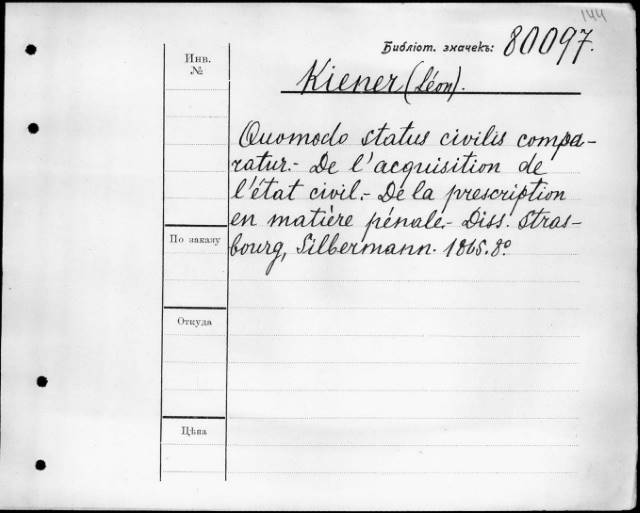 144
Библіот. значекъ: 80097.
Инв.
№
Kiener (Léon).
Quomodo status civilis compa-
ratur.- De l'acquisition de
l'état civil.- De la prescription
en matière pénale.- Diss. Stras-
bourg, Silbermann. 1865. 8º
По заказу
Откуда
Цѣна